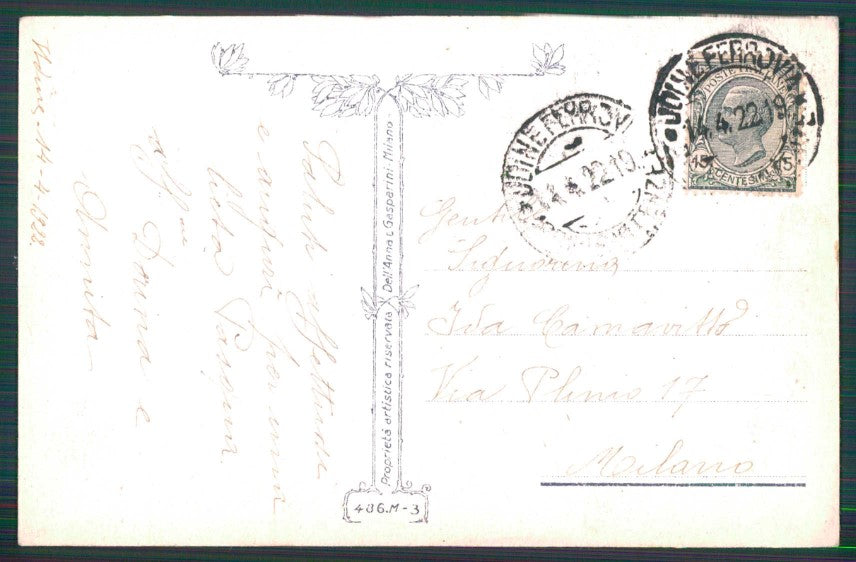 Udine, 14-4-1922.
Saluti affettuosi
e auguri per una
lieta Pasqua.
aff.me Dorina e
Proprietà artistica riservata Dell'Anna & Gasparini Milano
486.M-3
UDINE FERROV
14.4.22.19
UDINE FERROVIA
14.4.22.19
POSTE
15
CENTESIMI
15
Signorina
Ida
Via Plinio 17
Milano